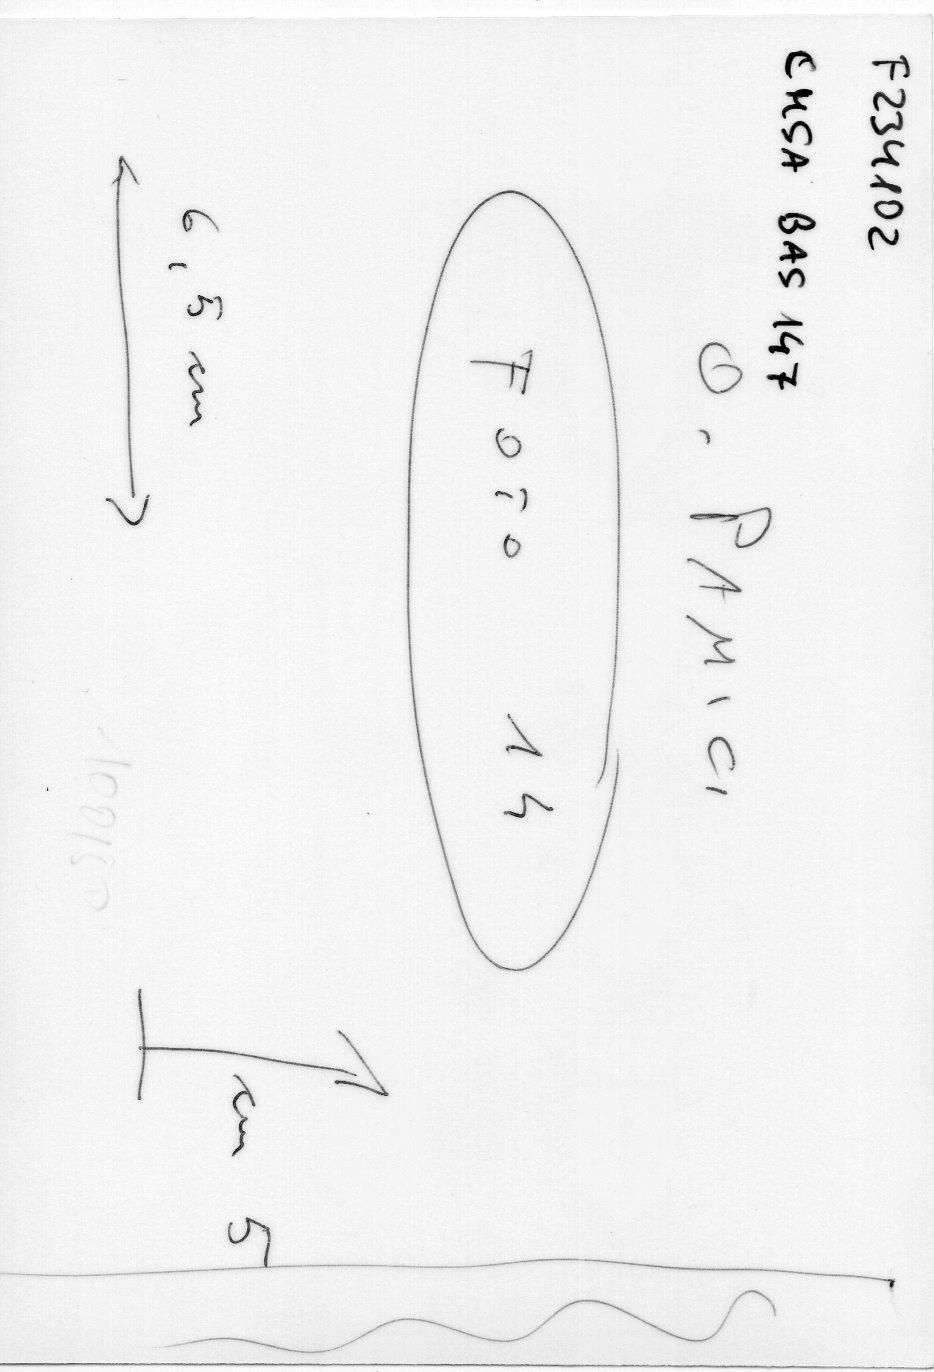 F234102
CMSA BAS 147
O. PAMICI
FOTO 14
6,5 cm
cm 5